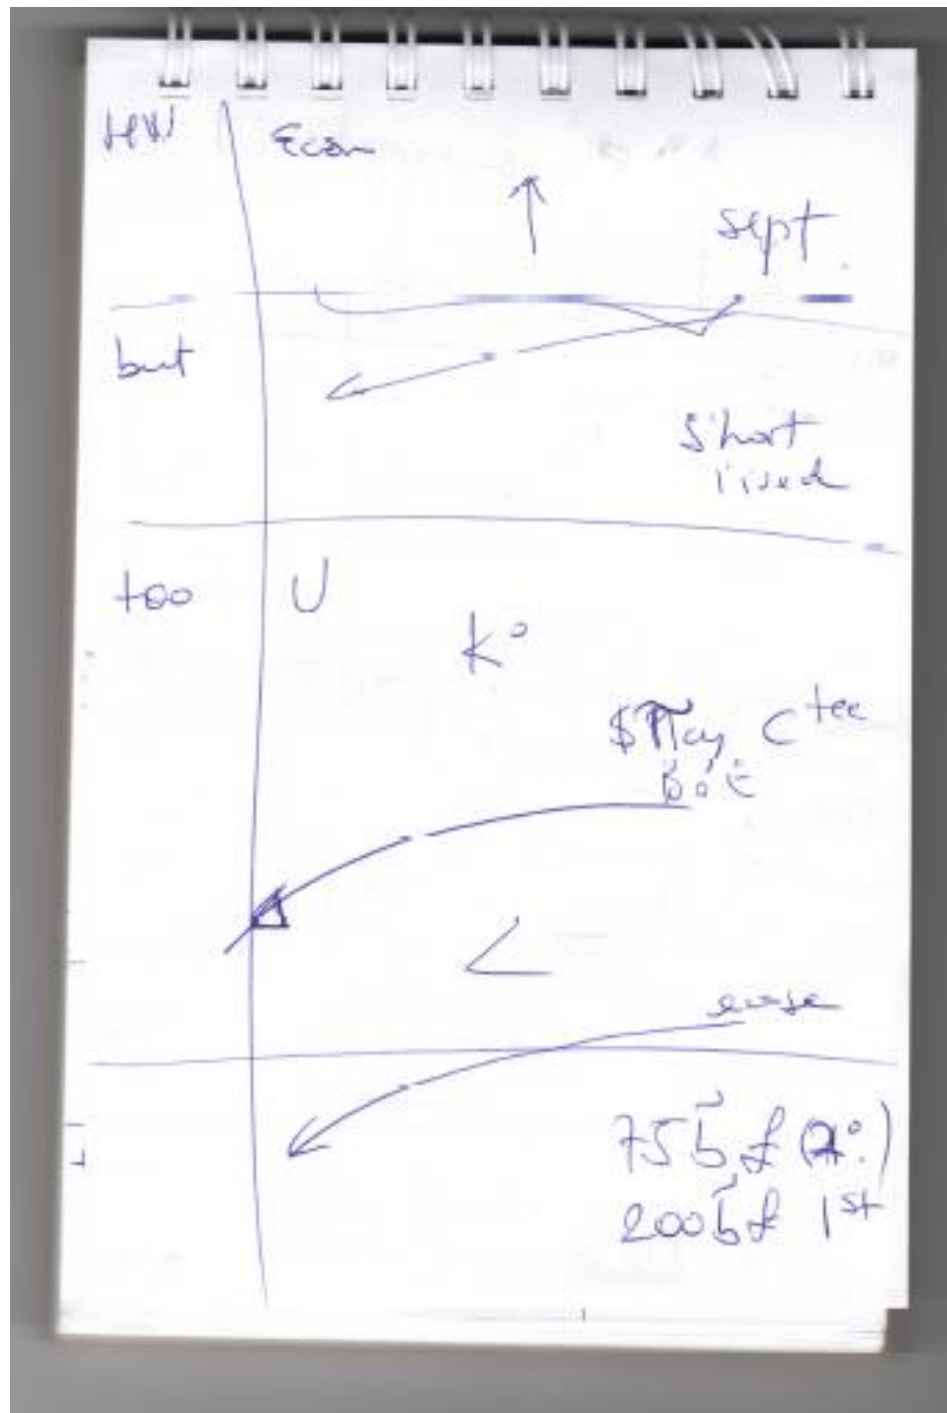 Econ
↑
sept.
but
Short
lived
too U
K°
$ Π cy Ctee
BoE
<
ease
75b £ (2°)
200b £ 1st